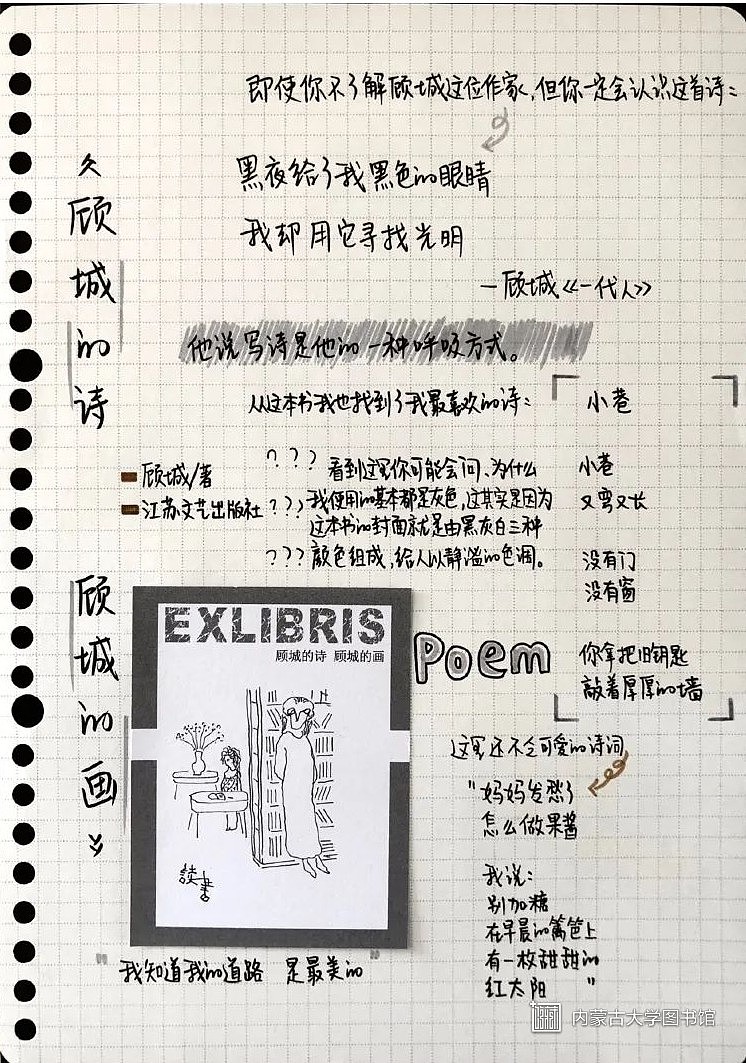 即使你不了解顾城这位作家,但你一定会认识这首诗:
黑夜给了我黑色的眼睛
我却用它寻找光明
—顾城《一代人》
《顾城的诗
顾城的画》
他说写诗是他的一种呼吸方式。
从这本书我也找到了我最喜欢的诗:
顾城/著
江苏文艺出版社
???看到这里你可能会问、为什么
???我使用的基本都是灰色,这其实是因为
这本书的封面就是由黑灰白三种
???颜色组成,给人以静溢的色调。
小巷
小巷
又弯又长
没有门
没有窗
你拿把旧钥匙
敲着厚厚的墙
EXLIBRIS
顾城的诗 顾城的画
読書
Poem
这里还不乏可爱的诗词
"妈妈发愁了
怎么做果酱
我说:
别加糖
在早晨的篱笆上
有一枚甜甜的
红太阳"
"我知道我的道路 是最美的"
内蒙古大学图书馆